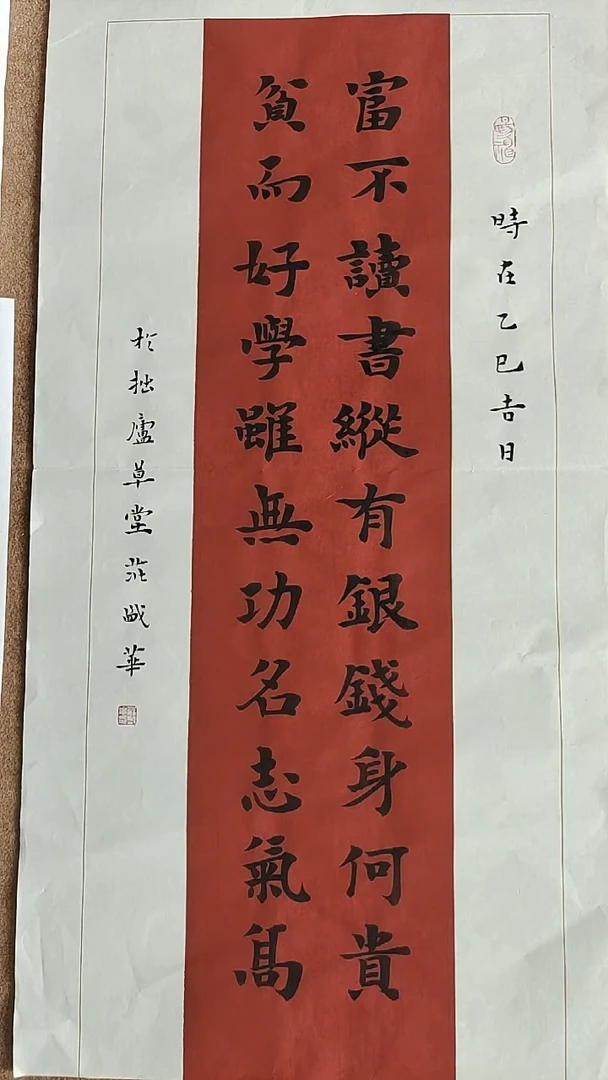 時在乙巳吉日
富不讀書縱有銀錢身何貴
貧而好學雖無功名志氣高
於拙廬草堂莊盛華